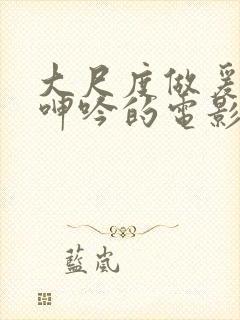 大尺度做爰
呻吟的电影
藍嵐